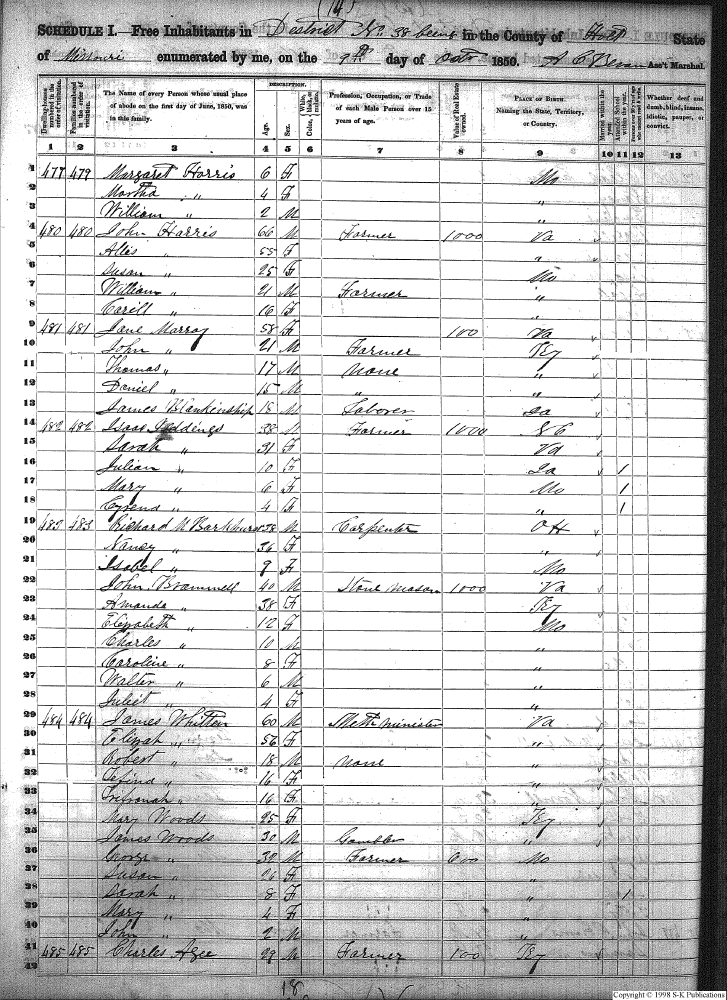 (14)
SCHEDULE I.—Free Inhabitants in District No 38 being in the County of Holt State
of Missouri enumerated by me, on the 9th day of Octr 1850. A C Bevan Ass't Marshal.
Dwelling-houses numbered in the order of visitation.
Families numbered in the order of visitation.
The Name of every Person whose usual place of abode on the first day of June, 1850, was in this family.
DESCRIPTION.
Age.
Sex.
Color, White, black, or mulatto.
Profession, Occupation, or Trade of each Male Person over 15 years of age.
Value of Real Estate owned.
PLACE OF BIRTH.
Naming the State, Territory, or Country.
Married within the year.
Attended School within the year.
Persons over 20 y'rs of age who cannot read & write.
Whether deaf and dumb, blind, insane, idiotic, pauper, or convict.
1 2 3 4 5 6 7 8 9 10 11 12 13
1 477 479 Margaret Harris 6 F Mo
2 Martha " 4 F "
3 William " 2 M "
4 480 480 John Harris 66 M Farmer 1000 Va
5 Allis " 55 F "
6 Susan " 25 F Mo
7 William " 21 M Farmer "
8 Carill " 16 F "
9 481 481 Jane Marray 58 F 100 Va
10 John " 21 M Farmer Ky
11 Thomas " 17 M None "
12 Daniel " 15 M " "
13 James Blankinship 18 M Laborer Ia
14 482 482 Isaac Giddings 38 M Farmer 1000 N C
15 Sarah " 31 F Va
16 Julian " 10 F Ia 1
17 Mary " 6 F Mo 1
18 " 4 F " 1
19 483 483 Richard N Barkhurst 38 M Carpenter OH
20 Nancy " 36 F "
21 Isabel " 9 F Mo
22 John Brammell 40 M Stone Mason 1000 Va
23 Amanda " 38 F Ky
24 Elizabeth " 12 F Mo
25 Charles " 10 M "
26 Caroline " 8 F "
27 Walter " 6 M "
28 Juliet " 4 F "
29 484 484 James Whitten 60 M Meth minister Va
30 Elizah " 56 F "
31 Robert " 18 M None "
32 " 16 F "
33 " 16 F "
34 Mary Woods 95 F Ky
35 James Woods 30 M Gambler "
36 George " 32 M Farmer 600 Mo
37 Susan " 26 F "
38 Sarah " 8 F " 1
39 Mary " 4 F "
40 John " 2 M "
41 485 485 Charles Agee 28 M Farmer 100 Ky
42
18
Copyright © 1998 S-K Publications